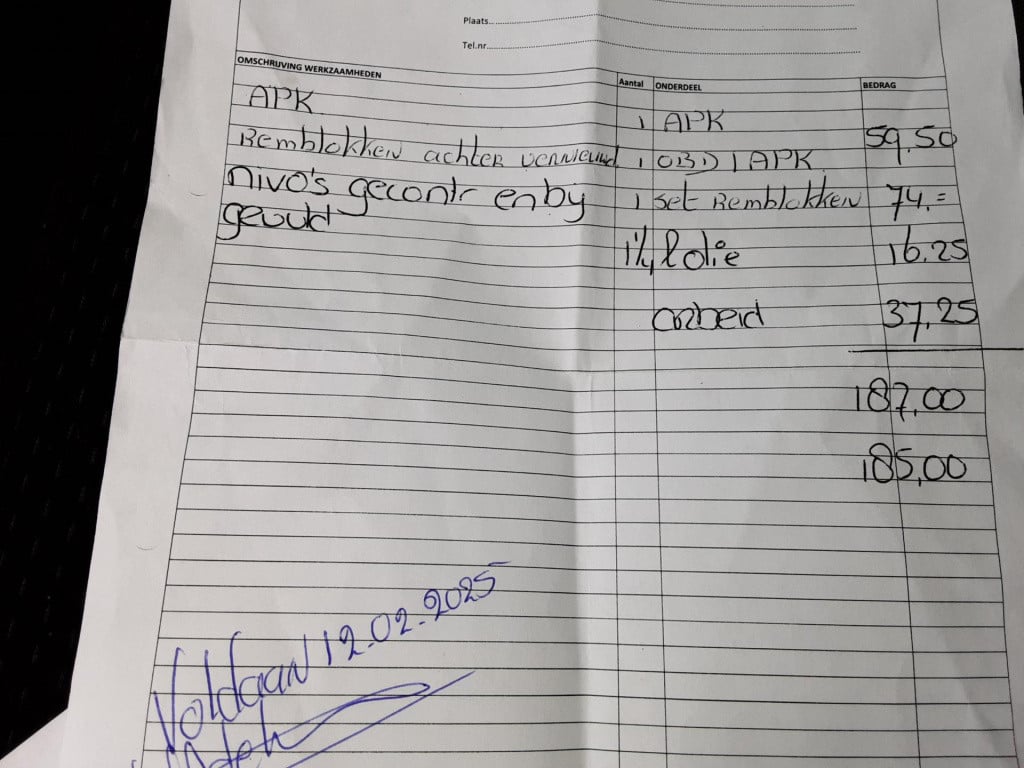 Plaats
Tel.nr
OMSCHRIJVING WERKZAAMHEDEN Aantal ONDERDEEL BEDRAG
APK 1 APK 59,50
Remblokken achter vernieuwd 1 OBD | APK
nivo's gecontr en by 1 set Remblokken 74.=
gevuld
1½ l olie 16.25
arbeid 37,25
187,00
185,00
Voldaan 12.02.2025